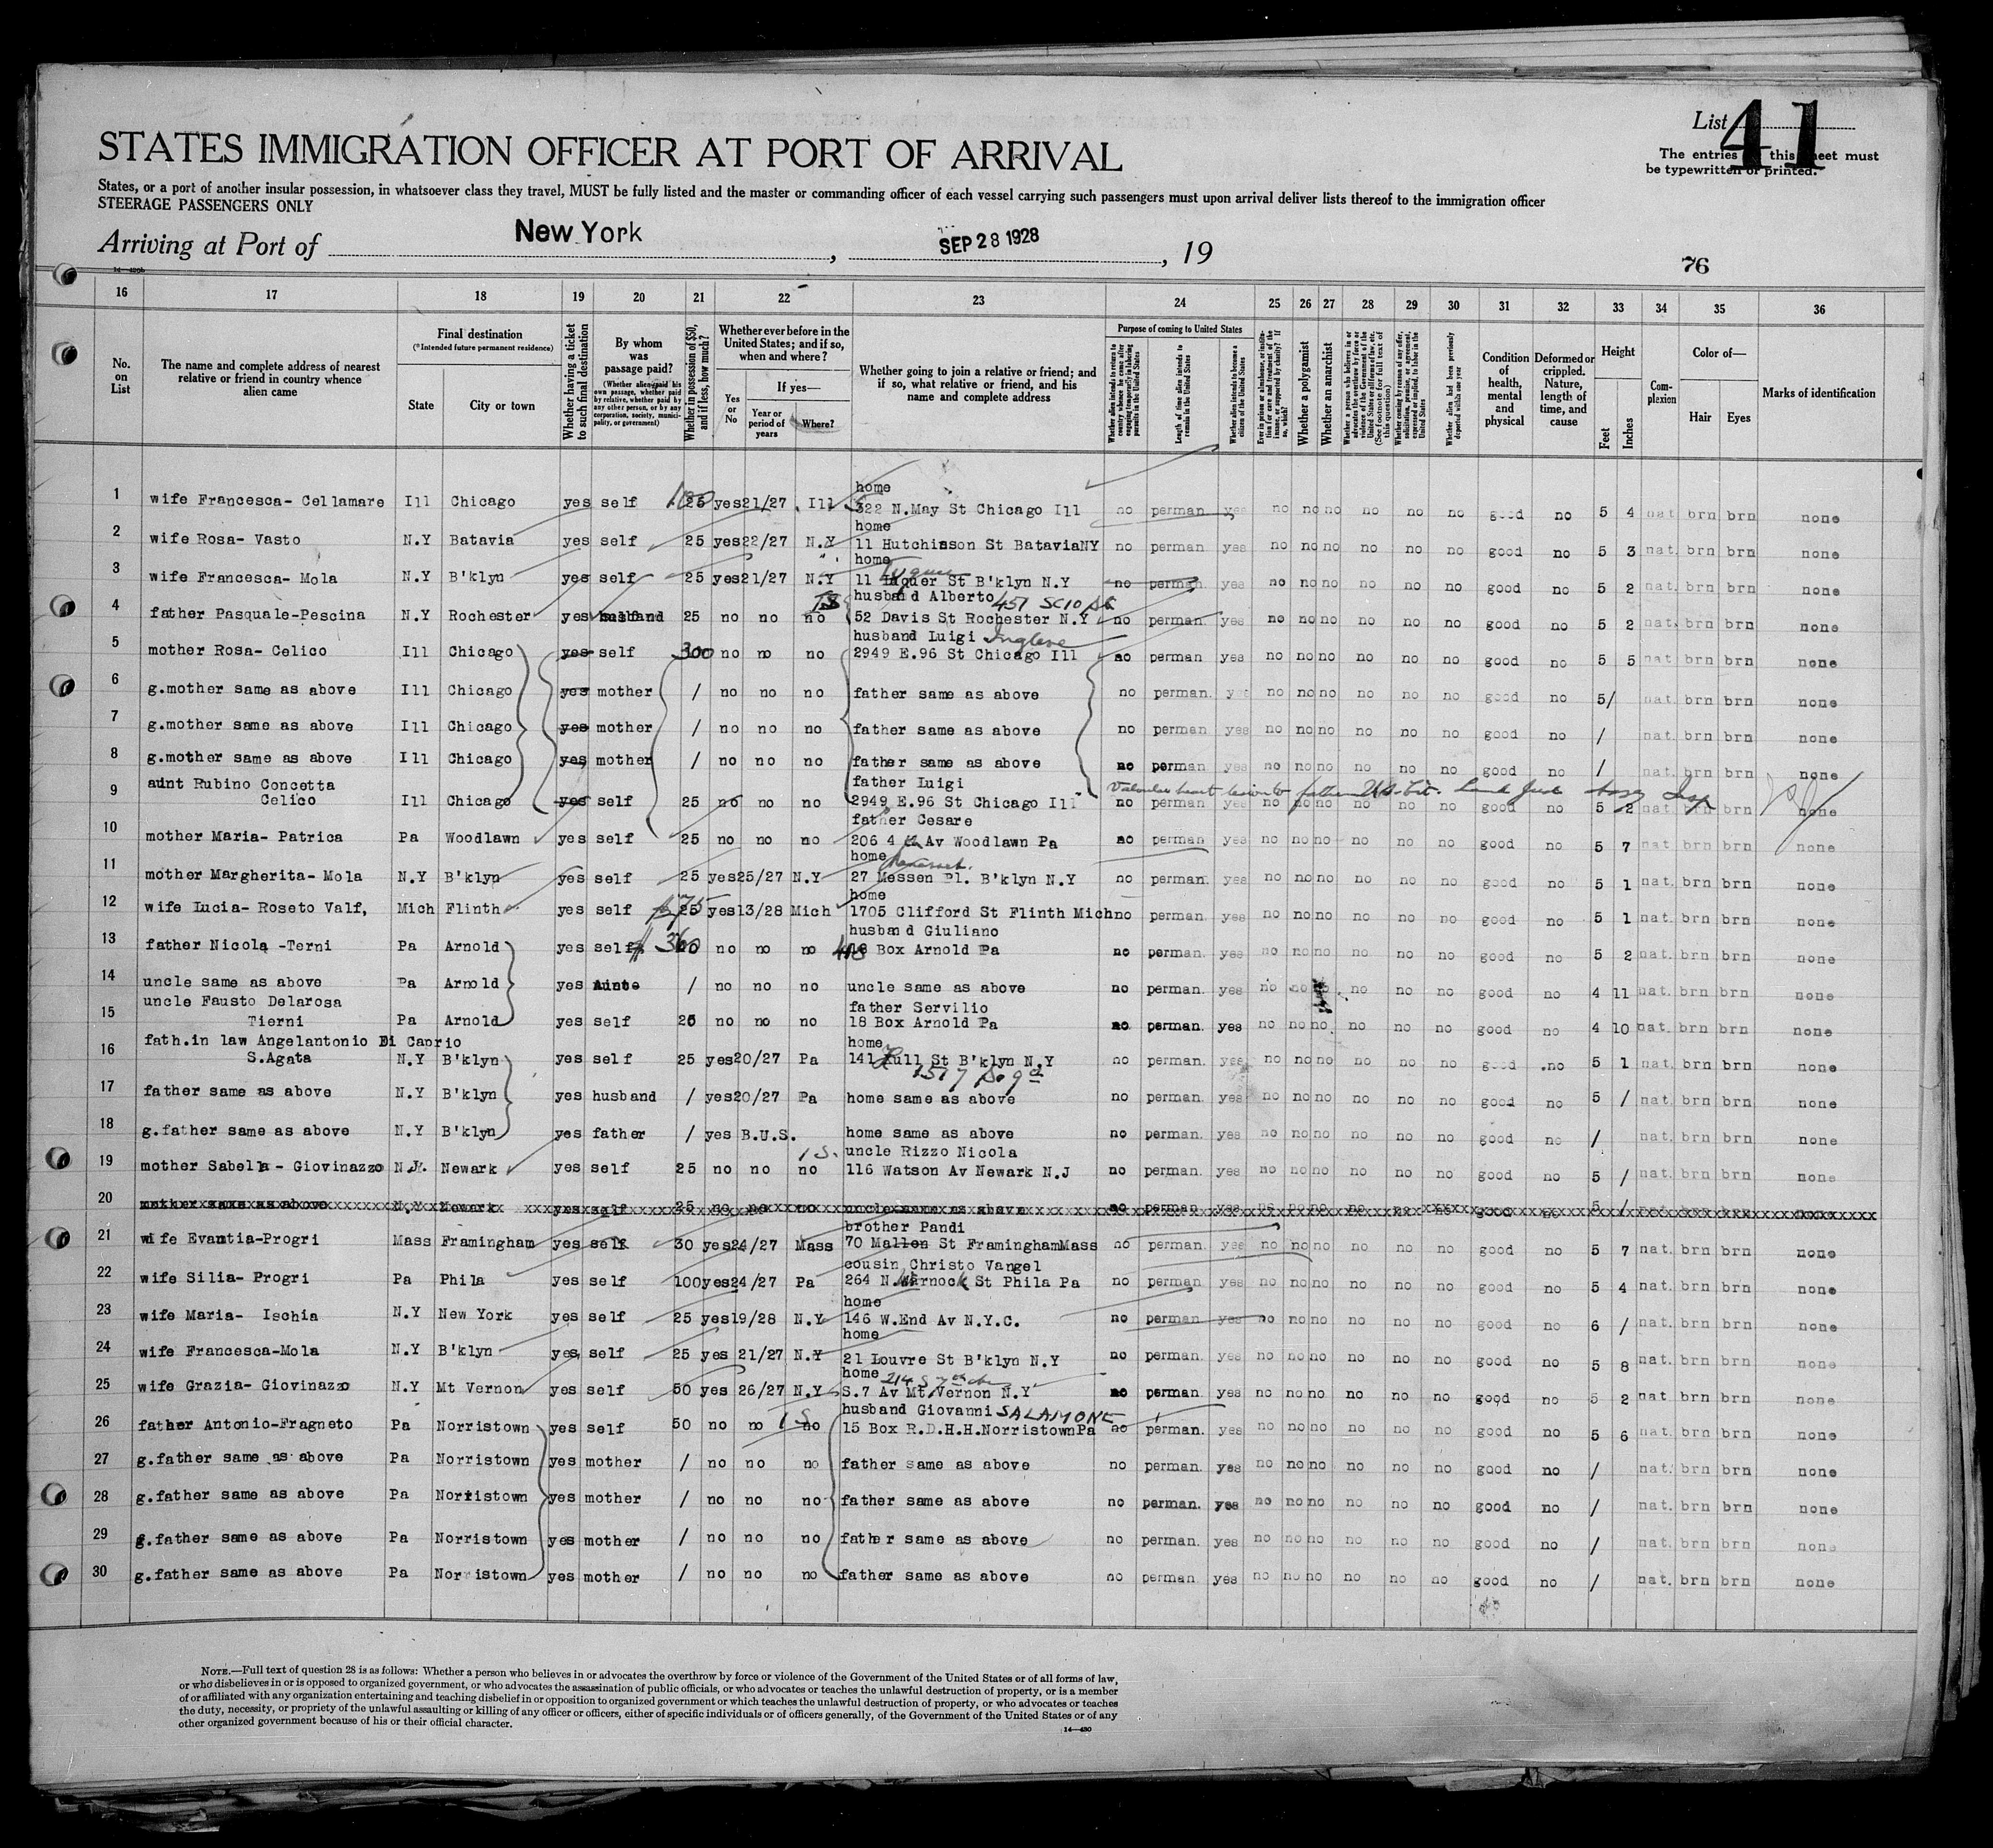 List 41
The entries on this sheet must
be typewritten or printed.
STATES IMMIGRATION OFFICER AT PORT OF ARRIVAL
States, or a port of another insular possession, in whatsoever class they travel, MUST be fully listed and the master or commanding officer of each vessel carrying such passengers must upon arrival deliver lists thereof to the immigration officer
STEERAGE PASSENGERS ONLY
Arriving at Port of New York, SEP 28 1928, 19
76
16 17 18 19 20 21 22 23 24 25 26 27 28 29 30 31 32 33 34 35 36
No. on List
The name and complete address of nearest relative or friend in country whence alien came
Final destination
(*Intended future permanent residence)
State
City or town
Whether having a ticket to such final destination
By whom was passage paid?
(Whether alien paid his own passage, whether paid by relative, whether paid by any other person, or by any corporation, society, municipality, or government)
Whether in possession of $50, and if less, how much?
Whether ever before in the United States; and if so, when and where?
Yes or No
If yes—
Year or period of years
Where?
Whether going to join a relative or friend; and if so, what relative or friend, and his name and complete address
Purpose of coming to United States
Length of time alien intends to remain in the United States
Whether alien intends to become a citizen of the United States
Whether a polygamist
Whether an anarchist
Whether alien had been previously deported within one year
Condition of health, mental and physical
Deformed or crippled. Nature, length of time, and cause
Height
Feet
Inches
Complexion
Color of—
Hair
Eyes
Marks of identification
1 wife Francesca- Cellamare Ill Chicago yes self 100 25 yes 21/27 Ill home 322 N.May St Chicago Ill no perman yes no no no no no no good no 5 4 nat brn brn none
2 wife Rosa- Vasto N.Y Batavia yes self 25 yes 22/27 N.Y home 11 Hutchinson St Batavia NY no perman yes no no no no no no good no 5 3 nat. brn brn none
3 wife Francesca- Mola N.Y B'klyn yes self 25 yes 21/27 N.Y home 11 Luquer St B'klyn N.Y no perman. yes no no no no no no good no 5 2 nat. brn brn none
4 father Pasquale-Pescina N.Y Rochester yes husband 25 no no no husband Alberto 451 SCIO St 52 Davis St Rochester N.Y no perman. yes no no no no no no good no 5 2 nat. brn brn none
5 mother Rosa- Celico Ill Chicago yes self 300 no no no husband Luigi Inglese 2949 E.96 St Chicago Ill no perman yes no no no no no no good no 5 5 nat brn brn none
6 g.mother same as above Ill Chicago yes mother / no no no father same as above no perman. yes no no no no no no good no 5/ nat. brn brn none
7 g.mother same as above Ill Chicago yes mother / no no no father same as above no perman yes no no no no no no good no / nat. brn brn none
8 g.mother same as above Ill Chicago yes mother / no no no father same as above no perman yes no no no no no no good no / nat. brn brn none
9 aunt Rubino Concetta Celico Ill Chicago yes self 25 no no no father Luigi 2949 E.96 St Chicago Ill no perman yes no no no no no no good no 5 2 nat brn brn none
Valvular heart lesion to father
10 mother Maria- Patrica Pa Woodlawn yes self 25 no no no father Cesare 206 4 th Av Woodlawn Pa no perman yes no no no no no no good no 5 7 nat brn brn none
11 mother Margherita- Mola N.Y B'klyn yes self 25 yes 25/27 N.Y home 27 Messen Pl. B'klyn N.Y no perman. yes no no no no no no good no 5 1 nat. brn brn none
12 wife Lucia- Roseto Valf, Mich Flinth yes self $75 25 yes 13/28 Mich home 1705 Clifford St Flinth Mich no perman. yes no no no no no no good no 5 1 nat. brn brn none
13 father Nicola -Terni Pa Arnold yes self $ 360 no no no husband Giuliano 418 Box Arnold Pa no perman. yes no no no no no no good no 5 2 nat. brn brn none
14 uncle same as above Pa Arnold yes Aunt / no no no uncle same as above no perman. yes no no no no no good no 4 11 nat. brn brn none
15 uncle Fausto Delarosa Tierni Pa Arnold yes self 25 no no no father Servilio 18 Box Arnold Pa no perman. yes no no no no no no good no 4 10 nat. brn brn none
16 fath.in law Angelantonio Di Caprio S.Agata N.Y B'klyn yes self 25 yes 20/27 Pa home 141 Hull St B'klyn N.Y no perman. yes no no no no no no good .no 5 1 nat. brn brn none
17 father same as above N.Y B'klyn yes husband / yes 20/27 Pa home same as above no perman. yes no no no no no no good no 5 / nat. brn brn none
18 g.father same as above N.Y B'klyn yes father / yes B.U.S. home same as above no perman. yes no no no no no no good no / nat. brn brn none
19 mother Sabella - Giovinazzo N.J. Newark yes self 25 no no no uncle Rizzo Nicola 116 Watson Av Newark N.J no perman. yes no no no no no no good no 5 / nat. brn brn none
20 mother same as above N.Y Newark yes self 25 no no no uncle same as above no perman. yes no no no no no no good no 5 / nat. brn brn none
21 wife Evantia-Progri Mass Framingham yes self 30 yes 24/27 Mass brother Pandi 70 Mallen St Framingham Mass no perman. yes no no no no no no good no 5 7 nat. brn brn none
22 wife Silia- Progri Pa Phila yes self 100 yes 24/27 Pa cousin Christo Vangel 264 N.Warnock St Phila Pa no perman yes no no no no no no good no 5 4 nat. brn brn none
23 wife Maria- Ischia N.Y New York yes self 25 yes 19/28 N.Y home 146 W.End Av N.Y.C. no perman yes no no no no no no good no 6 / nat. brn brn none
24 wife Francesca-Mola N.Y B'klyn yes self 25 yes 21/27 N.Y home 21 Louvre St B'klyn N.Y no perman. yes no no no no no no good no 5 8 nat. brn brn none
25 wife Grazia- Giovinazzo N.Y Mt Vernon yes self 50 yes 26/27 N.Y home 214 S 7th Av S.7 Av Mt.Vernon N.Y no perman. yes no no no no no no good no 5 2 nat. brn brn none
26 father Antonio-Fragneto Pa Norristown yes self 50 no no no husband Giovanni SALAMONE 15 Box R.D.H.H.Norristown Pa no perman. yes no no no no no no good no 5 6 nat. brn brn none
27 g.father same as above Pa Norristown yes mother / no no no father same as above no perman. yes no no no no no no good no / nat. brn brn none
28 g.father same as above Pa Norristown yes mother / no no no father same as above no perman. yes no no no no no no good no / nat. brn brn none
29 g.father same as above Pa Norristown yes mother / no no no father same as above no perman. yes no no no no no no good no / nat. brn brn none
30 g.father same as above Pa Norristown yes mother / no no no father same as above no perman yes no no no no no no good no / nat. brn brn none
NOTE.—Full text of question 28 is as follows: Whether a person who believes in or advocates the overthrow by force or violence of the Government of the United States or of all forms of law,
or who disbelieves in or is opposed to organized government, or who advocates the assassination of public officials, or who advocates or teaches the unlawful destruction of property, or is a member
of or affiliated with any organization entertaining and teaching disbelief in or opposition to organized government or which teaches the unlawful destruction of property, or who advocates or teaches
the duty, necessity, or propriety of the unlawful assaulting or killing of any officer or officers, either of specific individuals or of officers generally, of the Government of the United States or of any
other organized government because of his or their official character.
14—430